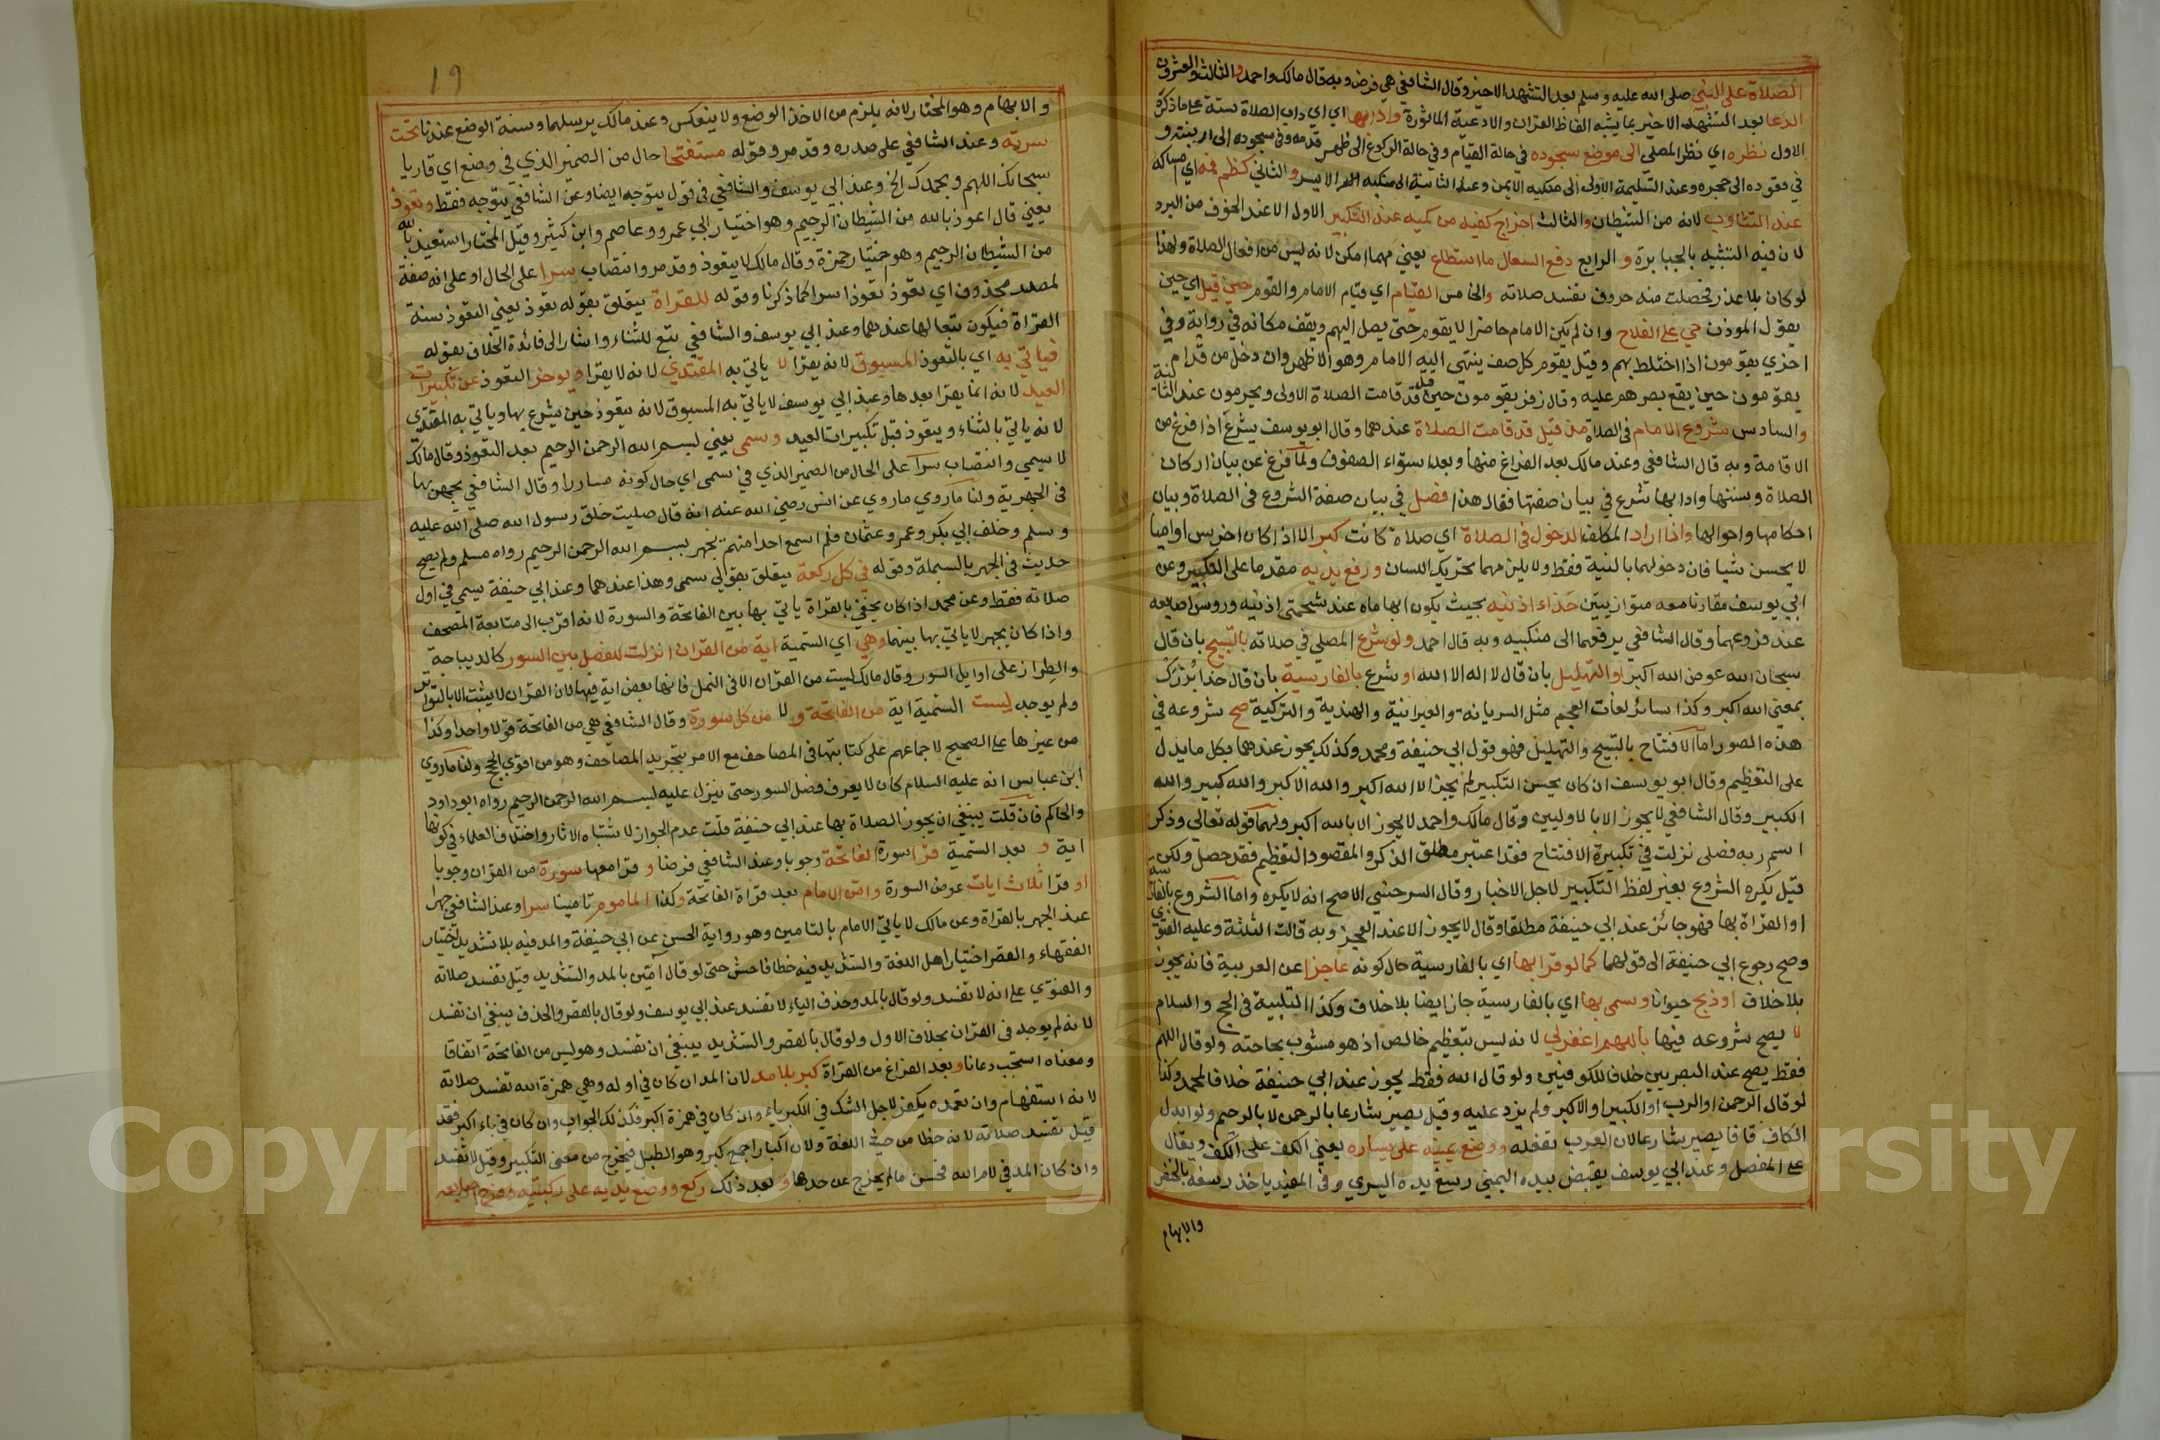 الصلاة على النبي صلى الله عليه وسلم بعد التشهد الاخير وقال الشافعي هي فرض وبه قال مالك واحمد والثالث والعشرون
الدعا بعد التشهد الاخير بما يشبه الفاظ القران والادعية الماثورة وادابها اي اي داب الصلاة ستة على ماذكره
الاول نظره اي نظر المصلي الى موضع سجوده في حالة القيام وفي حالة الركوع الى ظهر قدمه وفي سجوده الى ارنبته و
في قعوده الى حجره وعند التسليمة الاولى الى منكبه الايمن وعند الثانية الى منكبه الايسر والثاني كظم فمه اي امساكه
عند التثاوب لانه من الشيطان والثالث اخراج كفيه من كميه عند التكبير الاول الا عند الخوف من البرد
لان فيه التشبيه بالجبابرة و الرابع دفع السعال ما استطاع يعني مهما امكن لانه ليس من افعال الصلاة ولهذا
لو كان بلا عذر فحصلت منه حروف تفسد صلاته والخامس القيام اي قيام الامام والقوم حين قيل اي حين
يقول الموذن حي على الفلاح وان لم يكن الامام حاضرا لا يقوم حتى يصل اليهم ويقف مكانه في رواية وفي
اخري يقومون اذا اختلط بهم وقيل يقوم كل صف ينتهي اليه الامام وهو الاظهر وان دخل من قدام
يقومون حين يقع بصرهم عليه وقال زفر يقومون حين قيل قد قامت الصلاة الاولى ويحرمون عند الثانية
والسادس شروع الامام في الصلاة مذ قيل قد قامت الصلاة عندهما وقال ابو يوسف يشرع اذا فرغ من
الاقامة وبه قال الشافعي وعند مالك بعد الفراغ منها وبعد استواء الصفوف ولما فرغ عن بيان اركان
الصلاة وسننها وادابها شرع في بيان صفتها فقال هذا فصل في بيان صفة الشروع في الصلاة وبيان
احكامها واحوالها واذا اراد المكلف الدخول في الصلاة اي صلاة كانت كبر الا اذا كان اخرس او اميا
لا يحسن شيا فان دخولهما بالنية فقط ولا يلزمهما تحريك اللسان ورفع يديه مقدما على التكبير وعن
ابي يوسف مقارنا معه متوازيين حذاء اذنيه بحيث يكون ابهاماه عند شحمتي اذنيه وروس اصابعه
عند فروعهما وقال الشافعي يرفعهما الى منكبيه وبه قال احمد ولو شرع المصلي في صلاته بالتسبيح بان قال
سبحان الله عوض الله اكبر او التهليل بان قال لا اله الا الله او شرع بالفارسية بان قال خدا بزرك
بمعنى الله اكبر وكذا سائر لغات العجم مثل السريانه والعبرانية والهندية والتركية صح شروعه في
هذه الصور اما الافتتاح بالتسبيح والتهليل فهو قول ابي حنيفة ومحمد وكذلك يجوز عندهما بكل ما يدل
على التعظيم وقال ابو يوسف ان كان يحسن التكبير لم يجز الا الله اكبر والله الاكبر والله كبير والله
الكبير وقال الشافعي لا يجوز الا بالاوليين وقال مالك واحمد لا يجوز الا بالله اكبر ولهما قوله تعالى وذكر
اسم ربه فصلى نزلت في تكبيرة الافتتاح فقد اعتبر مطلق الذكر والمقصود التعظيم فقد حصل ولكن
قيل يكره الشروع بغير لفظ التكبير لاجل الاخبار وقال السرخسي الاصح انه لا يكره واما الشروع بالفارسية
او القراة بها فهو جائز عند ابي حنيفة مطلقا وقال لا يجوز الا عند العجز وبه قالت الثلثة وعليه الفتوي
وصح رجوع ابي حنيفة الى قولهما كما لو قرا بها اي بالفارسية حال كونه عاجزا عن العربية فانه يجوز
بلا خلاف او ذبح حيوانا وسمى بها اي بالفارسية جاز ايضا بلا خلاف وكذا التلبية في الحج والسلام
لا يصح شروعه فيها باللهم اغفر لي لانه ليس بتعظيم خالص اذ هو مشوب بحاجته ولو قال اللهم
فقط يصح عند البصريين خلافا للكوفيين ولو قال الله فقط يجوز عند ابي حنيفة خلافا لمحمد وكذا
لو قال الرحمن او الرب او الكبير او الاكبر ولم يزد عليه وقيل يصير شارعا بالرحمن لا بالرحيم ولو ابدل
الكاف قافا يصير شارعا لان العرب تفعله ووضع يمينه على يساره يعني الكف على الكف ويقال
على المفصل وعند ابي يوسف يقبض بيده اليمني رسغ يده اليسري وفي المفيد ياخذ رسغه بالخنصر
والابهام
١٩
والابهام وهو المختار لانه يلزم من الاخذ الوضع ولا ينعكس وعند مالك يرسلهما وسنة الوضع عندنا تحت
سرته وعند الشافعي على صدره وقد مر وقوله مستفتحا حال من الضمير الذي في وضع اي قاريا
سبحانك اللهم وبحمدك الخ وعند ابي يوسف والشافعي في قول يتوجه ايضا وعن الشافعي يتوجه فقط وتعوذ
يعني قال اعوذ بالله من الشيطان الرجيم وهو اختيار ابي عمرو وعاصم وابن كثير وقيل المختار استعيذ بالله
من الشيطان الرجيم وهو اختيار حمزة وقال مالك لا يتعوذ وقد مر وانتصاب سرا على الحال او على انه صفة
لمصدر محذوف اي تعوذ تعوذا سرا كما ذكرنا وقوله للقراة يتعلق بقوله تعوذ يعني التعوذ سنة
القراة فيكون تبعا لها عندهما وعند ابي يوسف والشافعي تبع للثناء واشار الى فائدة الخلاف بقوله
فياتي به اي بالتعوذ المسبوق لانه يقرا لا ياتي به المقتدي لانه لا يقرا ويوخر التعوذ عن تكبيرات
العيد لانه انما يقرا بعدها وعند ابي يوسف لا ياتي به المسبوق لانه يتعوذ حين يشرع بها وياتي به المقتدي
لانه ياتي بالثناء ويتعوذ قبل تكبيرات العيد وسمى يعني بسم الله الرحمن الرحيم بعد التعوذ وقال مالك
لا يسمي وانتصاب سرا على الحال من الضمير الذي في سمى اي حال كونه مسارا وقال الشافعي يجهر بها
في الجهرية ولنا ما روي عن انس رضي الله عنه انه قال صليت خلف رسول الله صلى الله عليه
وسلم وخلف ابي بكر وعمر وعثمان فلم اسمع احدا منهم يجهر ببسم الله الرحمن الرحيم رواه مسلم ولم يصح
حديث في الجهر بالبسملة وقوله في كل ركعة يتعلق بقوله سمى وهذا عندهما وعند ابي حنيفة يسمي في اول
صلاته فقط وعن محمد اذا كان يخفي بالقراة ياتي بها بين الفاتحة والسورة لانه اقرب الى متابعة المصحف
واذا كان يجهر لا ياتي بها بينهما وهي اي التسمية اية من القران انزلت للفصل بين السور كالديباجة
والطراز على اوايل السور وقال مالك ليست من القران الا في النمل فانها بعض اية فيها لان القران لا يثبت الا بالتواتر
ولم يوجد ليست التسمية اية من الفاتحة و لا من كل سورة وقال الشافعي هي من الفاتحة قولا واحدا وكذا
من غيرها على الصحيح لاجماعهم على كتابتها في المصاحف مع الامر بتجريد المصاحف وهو من اقوي الحجج ولنا ماروي
ابن عباس انه عليه السلام كان لا يعرف فصل السور حتى ينزل عليه بسم الله الرحمن الرحيم رواه ابو داود
والحاكم فان قلت ينبغي ان يجوز الصلاة بها عند ابي حنيفة قلت عدم الجواز لاشتباه الاثار واختلاف العلماء في كونها
اية و بعد التسمية قرا سورة الفاتحة وجوبا وعند الشافعي فرضا و قرا معها سورة من القران وجوبا
او قرا ثلاث ايات عوض السورة وامن الامام بعد قراة الفاتحة وكذا الماموم تامينا سرا وعند الشافعي جهرا
عند الجهر بالقراة وعن مالك لا ياتي الامام بالتامين وهو رواية الحسن عن ابي حنيفة والمد فيه بلا تشديد اختيار
الفقهاء والقصر اختيار اهل اللغة والتشديد فيه خطا فاحش حتى لو قال امين بالمد والتشديد قيل تفسد صلاته
والفتوي على انه لا تفسد ولو قال بالمد وحذف الياء لا تفسد عند ابي يوسف ولو قال بالقصر والحذف ينبغي ان تفسد
لانه لم يوجد في القران بخلاف الاول ولو قال بالقصر والتشديد ينبغي ان تفسد وهو ليس من الفاتحة اتفاقا
ومعناه استجب دعانا وبعد الفراغ من القراة كبر بلا مد لان المد ان كان في اوله وهي همزة الله تفسد صلاته
لانه استفهام وان تعمده يكفر لاجل الشك في الكبرياء وان كان في همزة اكبر فكذلك الجواب وان كان في باء اكبر فقد
قيل تفسد صلاته لانه خطا من حيث اللغة ولان اكبار جمع كبر وهو الطبل فيخرج من معنى التكبير وقيل لا تفسد
وان كان المد في لام الله فحسن مالم يخرج عن حدها و بعد ذلك ركع ووضع يديه على ركبتيه وفرج اصابعه
Copyright © King Saud University